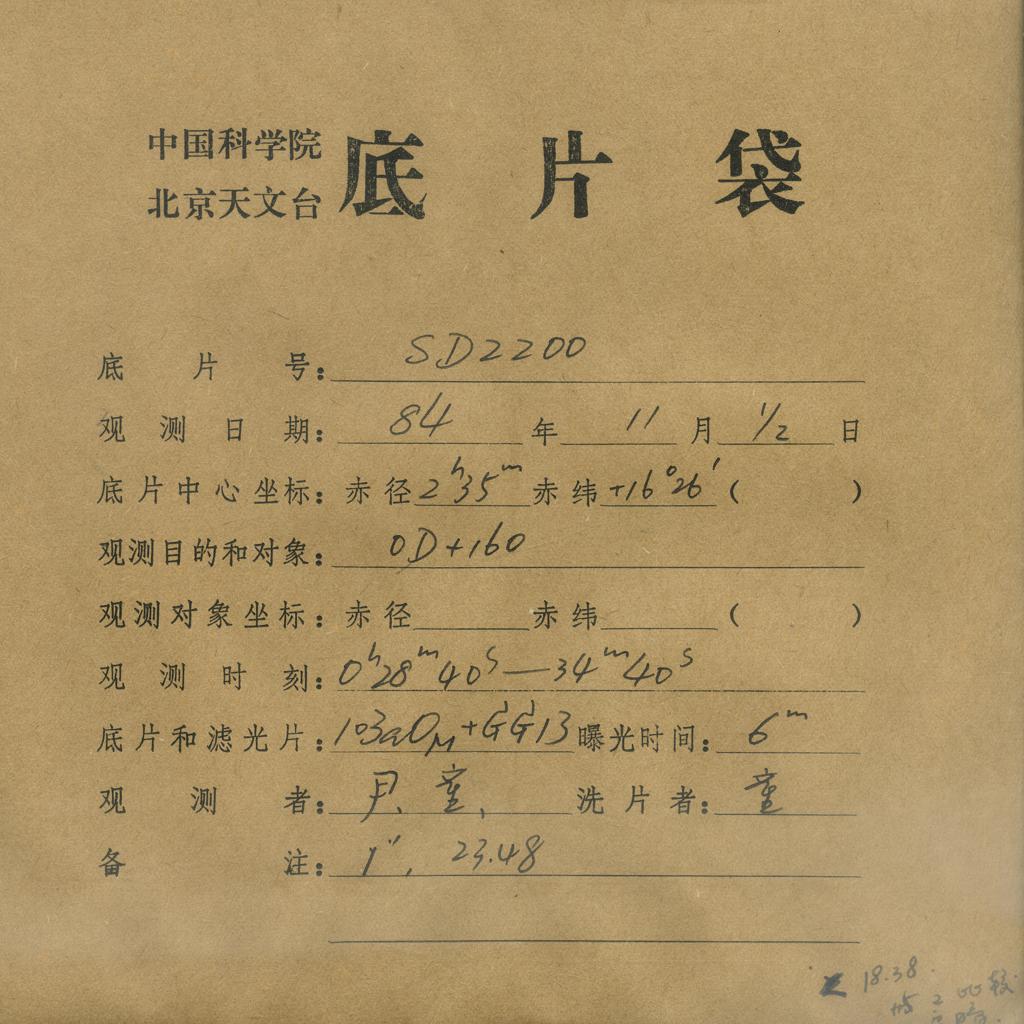 中国科学院
北京天文台
底片袋
底片号：SD2200
观测日期：84年11月1/2日
底片中心坐标：赤径2ʰ35ᵐ赤纬+16°26′（ ）
观测目的和对象：OD+160
观测对象坐标：赤径 赤纬 （ ）
观测时刻：0ʰ28ᵐ40ˢ—34ᵐ40ˢ
底片和滤光片：103aOM+GG13曝光时间：6ᵐ
观测者：尹、童、 洗片者：童
备注：1″, 23.48
18.38
比较